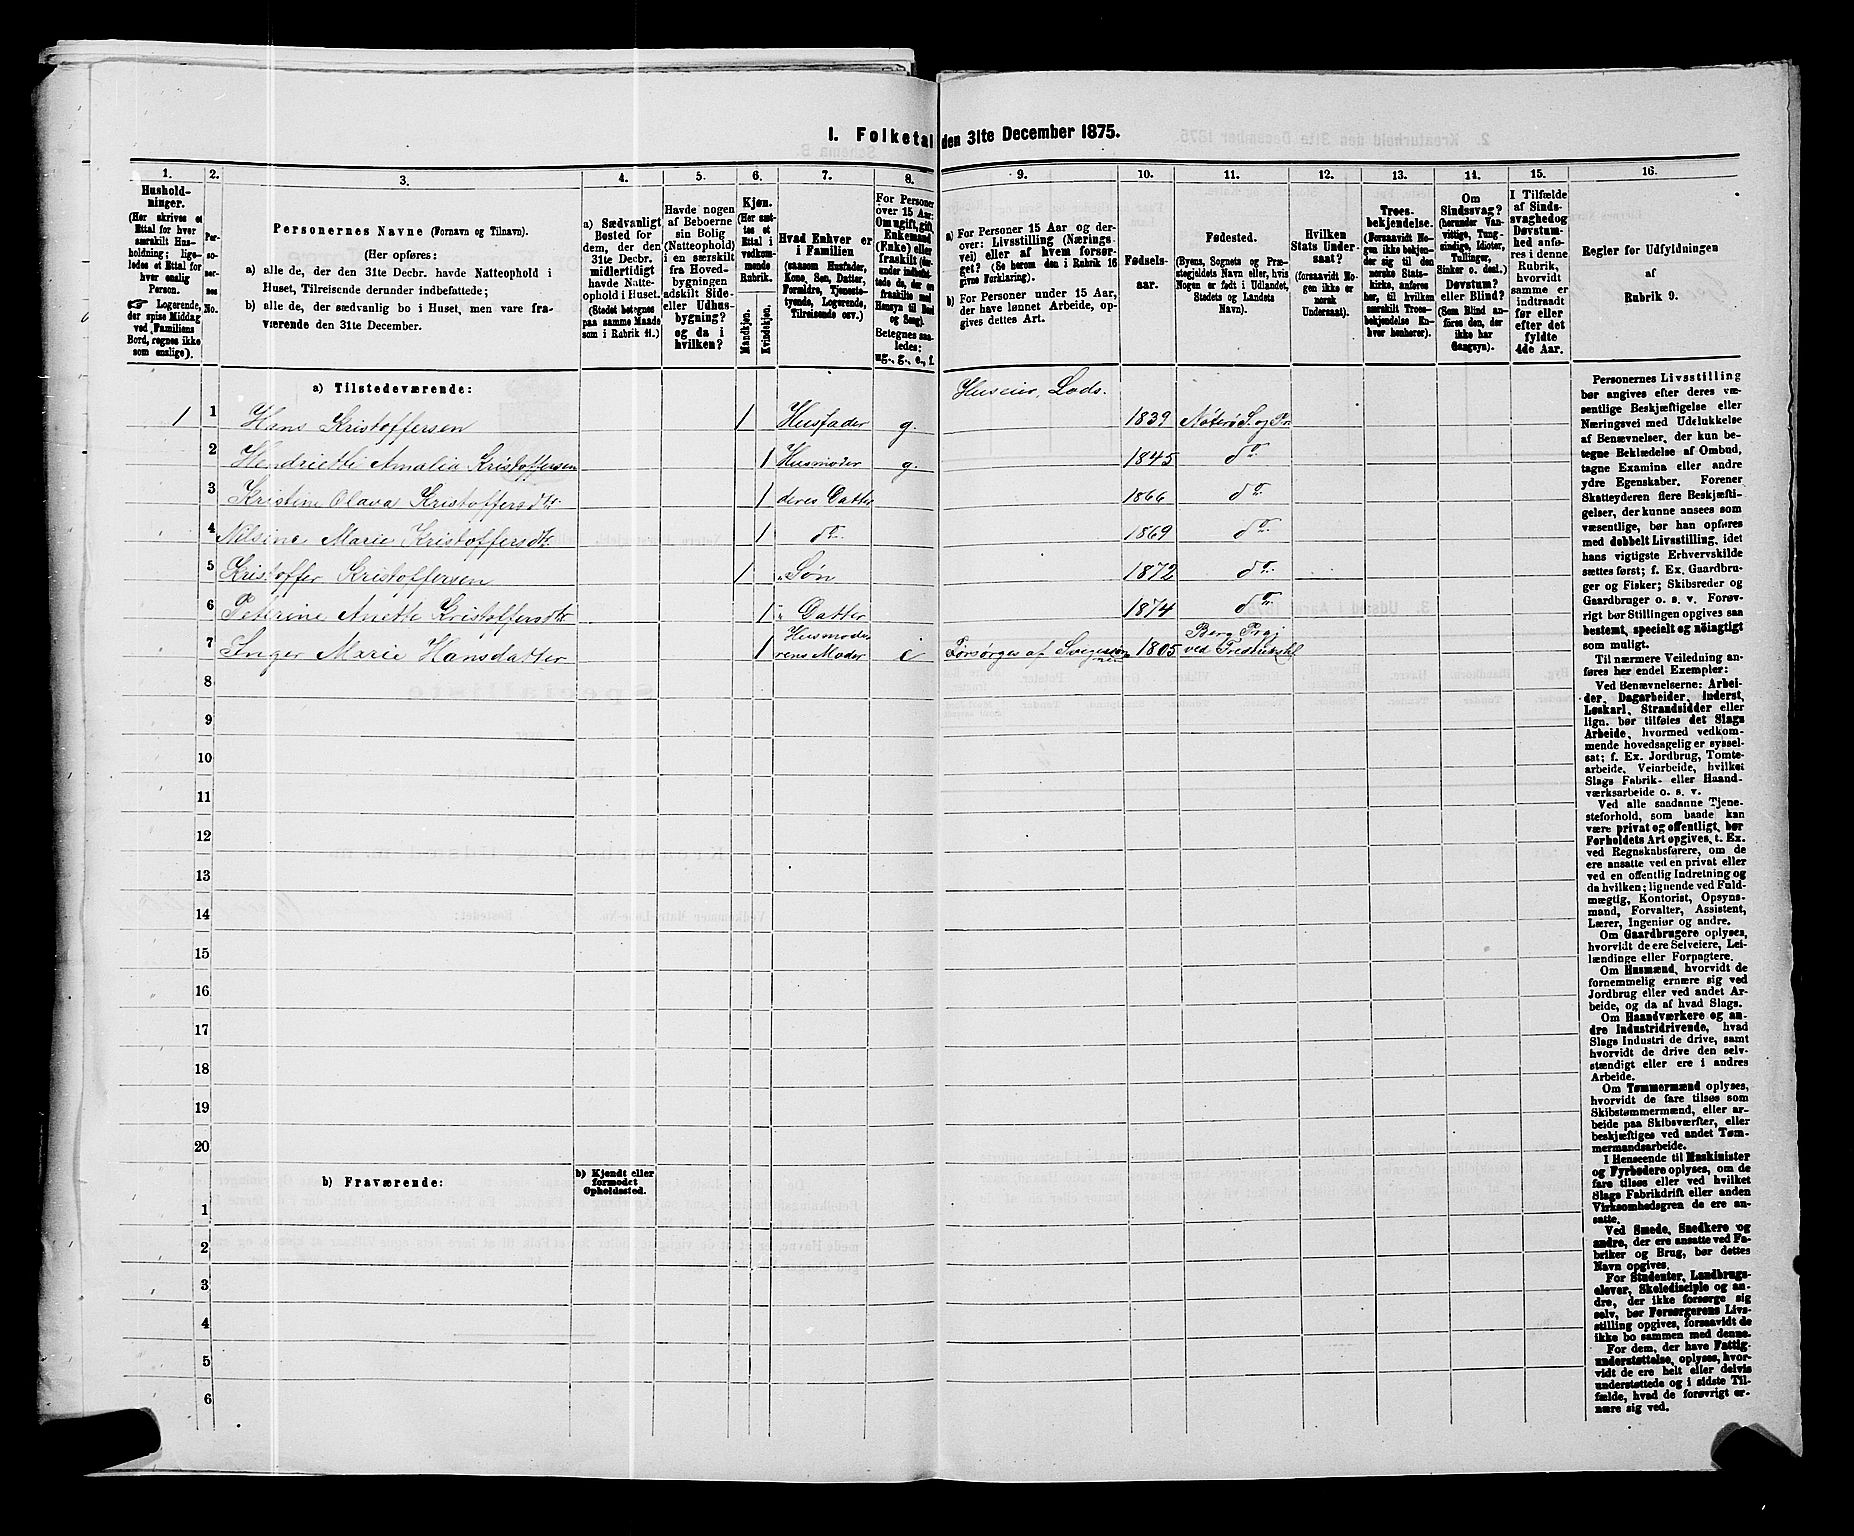 I. Folketal den 31te December 1875.
1.
Hushold-
ninger.
(Her skrives et
Ettal for hver
særskilt Hus-
holdning; lige-
ledes et Ettal for
hver enslig
Person.
Logerende,
der spise Middag
ved Familiens
Bord, regnes ikke
som enslige).
2.
Per-
so-
ner-
nes
No.
3.
Personernes Navne (Fornavn og Tilnavn).
(Her opføres:
a) alle de, der den 31te Decbr. havde Natteophold i
Huset, Tilreisende derunder indbefattede;
b) alle de, der sædvanlig bo i Huset, men vare fra-
værende den 31te December.
4.
a) Sædvanligt
Bosted for
dem, der den
31te Decbr.
midlertidigt
havde Natte-
ophold i Huset.
(Stedet betegnes
paa samme Maade
som i Rubrik 11.)
5.
Havde nogen
af Beboerne
sin Bolig
(Natteophold)
i en særskilt
fra Hoved-
bygningen
adskilt Side-
eller Udhus-
bygning?
og da i
hvilken?
6.
Kjøn.
(Her sæt-
tes et
Ettal i
vedkom-
mende
Rubrik.
Mandkjøn.
Kvindekjøn.
7.
Hvad Enhver er
i Familien
(saasom Husfader,
Kone, Søn, Datter,
Forældre, Tjeneste-
tyende, Logerende,
Tilreisende osv.)
8.
For Personer
over 15 Aar:
Om ugift, gift,
Enkemand
(Enke) eller
fraskilt
Betegnes saa-
ledes:
ug., g., e., f.
9.
a) For Personer 15 Aar og der-
over: Livsstilling (Nærings-
vei) eller af hvem forsør-
get? (Se herom den i Rubrik 16
givne Forklaring).
b) For Personer under 15 Aar,
der have lønnet Arbeide, op-
gives dettes Art.
10.
Fødsels-
aar.
11.
Fødested.
(Byens, Sognets og Præ-
stegjeldets Navn eller, hvis
Nogen er født i Udlandet,
Stedets og Landets
Navn).
12.
Hvilken
Stats Under-
saat?
(forsaavidt No-
gen ikke er
norsk
Undersaat).
13.
Troes-
bekjendelse.
(Forsaavidt No-
gen ikke bekjen-
der sig til den
norske Stats-
kirke, anføres
her, til hvilken
særskilt Troes-
bekjendelse En-
hver henhører).
14.
Om
Sindssvag?
(herunder Van-
vittige, Tung-
sindige, Idioter,
Tullinger,
Sinker o. desl.)
Døvstum?
eller Blind?
(Som Blind an-
føres den, der
ikke har
Gangsyn).
15.
I Tilfælde
af Sinds-
svaghed og
Døvstum-
hed anfø-
res i denne
Rubrik,
hvorvidt
samme er
indtraadt
før eller
efter det
fyldte
4de Aar.
16.
Regler for Udfyldningen
af
Rubrik 9.
a) Tilstedeværende:
Huseier, Lods.
1 1 Hans Kristoffersen 1 Husfader g. 1839 Nøterø S. og Pr.
2 Hendriette Amalia Kristoffersen 1 Husmoder g. 1845 do.
3 Kristine Olava Kristoffersdtr. 1 deres Datter 1866 do.
4 Nilsine Marie Kristoffersdtr. 1 do. 1869 do.
5 Kristoffer Kristoffersen 1 " Søn 1872 do.
6 Petterine Anette Kristoffersdtr. 1 " Datter 1874 do.
7 Inger Marie Hansdatter 1 Husmode-
rens Moder e Forsørges af Svigersøn-
nen 1805 Berg Prgj
ved Fredrikshl
8
9
10
11
12
13
14
15
16
17
18
19
20
b) Fraværende:
b) Kjendt eller
formodet
Opholdssted.
1
2
3
4
5
6
Personernes Livsstilling
bør angives efter deres væ-
sentlige Beskjæftigelse eller
Næringsvei med Udelukkelse
af Benævnelser, der kun be-
tegne Beklædelse af Ombud,
tagne Examina eller andre
ydre Egenskaber. Forener
Skatteyderen flere Beskjæfti-
gelser, der kunne ansees som
væsentlige, bør han opføres
med dobbelt Livsstilling, idet
hans vigtigste Erhvervskilde
sættes først; f. Ex. Gaardbru-
ger og Fisker; Skibsreder og
Gaardbruger o. s. v. Forøv-
rigt bør Stillingen opgives saa
bestemt, specielt og nøiagtigt
som muligt.
Til nærmere Veiledning an-
føres her endel Exempler:
Ved Benævnelserne: Arbei-
der, Dagarbeider, Inderst,
Løskarl, Strandsidder eller
lign. bør tilføies det Slags
Arbeide, hvormed vedkom-
mende hovedsagelig er syssel-
sat; f. Ex. Jordbrug, Tomte-
arbeide, Veiarbeide, hvilket
Slags Fabrik- eller Haand-
værksarbeide o. s. v.
Ved alle saadanne Tjene-
steforhold, som baade kan
være privat og offentligt, bør
Forholdets Art opgives, t. Ex.
ved Regnskabsførere, om de
ere ansatte ved en privat eller
ved en offentlig Indretning og
da hvilken; lignende ved Fuld-
mægtig, Kontorist, Opsyns-
mand, Forvalter, Assistent,
Lærer, Ingeniør og andre.
Om Gaardbrugere oplyses,
hvorvidt de ere Selveiere, Lei-
lændinge eller Forpagtere.
Om Husmænd, hvorvidt de
fornemmelig ernære sig ved
Jordbrug eller ved andet Ar-
beide, og da af hvad Slags.
Om Haandværkere og an-
dre Industridrivende, hvad
Slags Industri de drive, samt
hvorvidt de drive den selv-
stændigt eller ere i andres
Arbeide.
Om Tømmermænd oplyses,
hvorvidt de fare tilsøs som
Skibstømmermænd, eller ar-
beide paa Skibsværfter, eller
beskjæftiges ved andet Tøm-
mermandsarbeide.
I Henseende til Maskinister
og Fyrbødere oplyses, om de
fare tilsøs eller ved hvilket
Slags Fabrikdrift eller anden
Virksomhedsgren de ere an-
satte.
Ved Smede, Snedkere og
andre, der ere ansatte ved Fa-
briker og Brug, bør dettes
Navn opgives.
For Studenter, Landbrugs-
elever, Skoledisciple og an-
dre, der ikke forsørge sig
selv, bør Forsørgerens Livs-
stilling opgives, forsaavidt de
ikke bo sammen med denne.
For dem, der have Fattig-
understøttelse, oplyses, hvor-
vidt de ere helt eller delvis
understøttede og i sidste Til-
fælde, hvad de forøvrigt er-
nære sig ved.